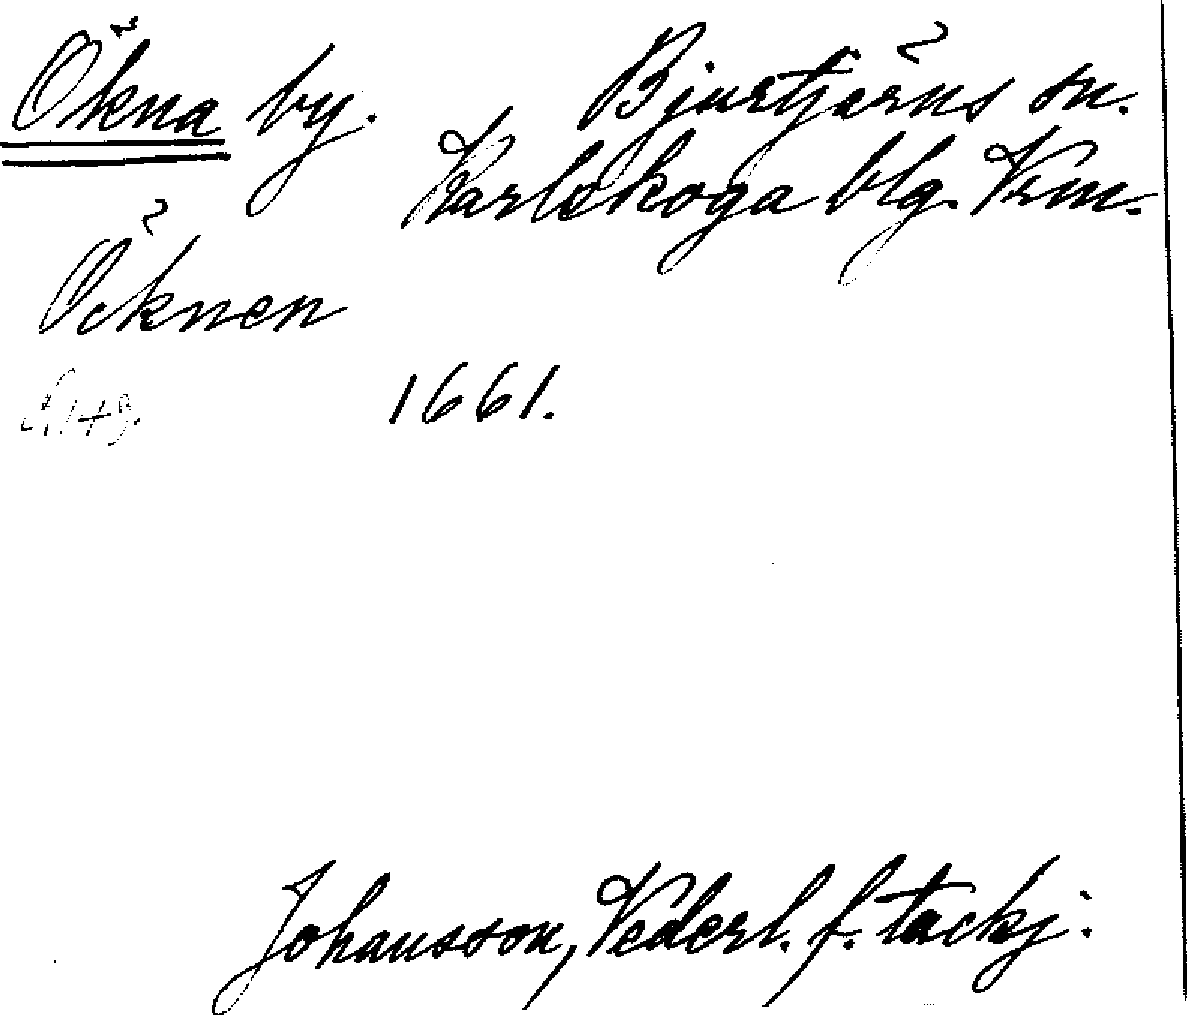 Ökna by. Bjurtjärns sn.
Karlskoga blg. Vrm.
Öcknen
1661.
Johansson, Vederl. f. tackj.